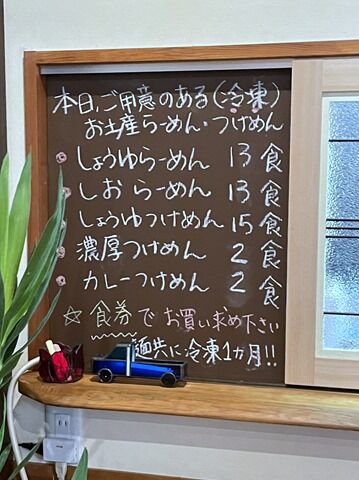 本日、ご用意のある(冷凍)
お土産らーめん・つけめん
しょうゆらーめん 13食
しおらーめん 13食
しょうゆつけめん 15食
濃厚つけめん 2食
カレーつけめん 2食
☆食券でお買い求め下さい
麺共に冷凍1か月!!